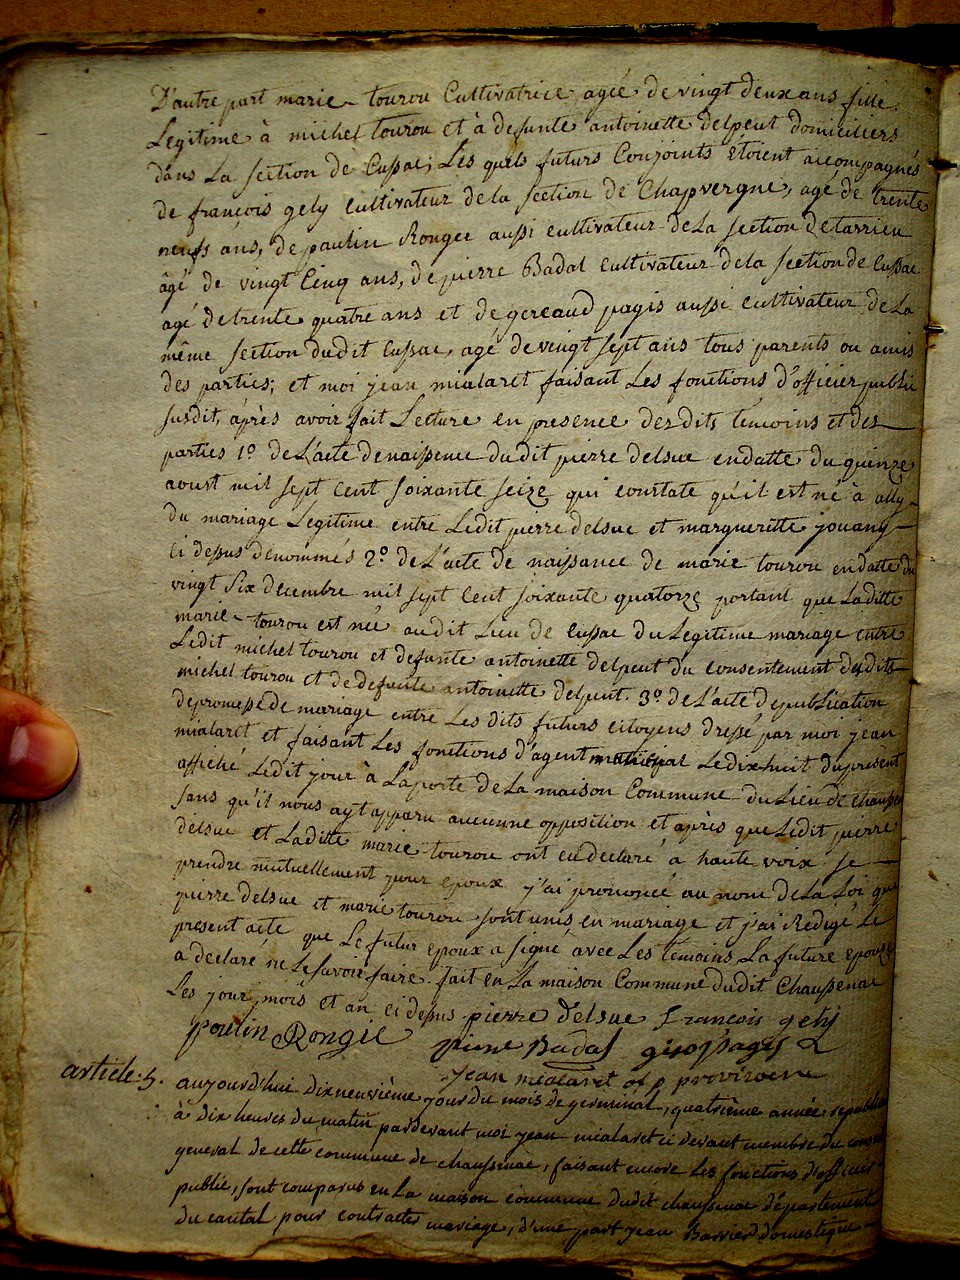 D'autre part marie tourou Cultivatrice agée de vingt deux ans fille
Legitime à michel tourou et à defunte antoinette delpeut domiciliers
dans La section de Cussac; Les quels futurs Conjoints étoient accompagnés
de françois gely cultivateur de la section de Chapvergne, agé de trente
neufs ans, de paulin Rongee aussi cultivateur de La section de tarrieu
âgé de vingt Cinq ans, de pierre Badal cultivateur de la section de Cussac
agé de trente quatre ans et de gereaud pagis aussi cultivateur de La
même section dudit Cussac, agé de vingt sept ans tous parents ou amis
des parties; et moi jean mialaret faisant Les fonctions d'officier public
susdit, après avoir fait Lecture en presence des dits temoins et des
parties 1º de L'acte de naissence dudit pierre delsue en datte du quinze
aoust mil sept Cent soixante seize qui constate qu'il est né à ally
du mariage Legitime entre Ledit pierre delsue et margueritte jouany
Ci dessus dénommés 2º de L'acte de naissance de marie tourou en datte du
vingt six decembre mil sept Cent soixante quatorze portant que Laditte
marie tourou est née audit Lieu de Cussac du Legitime mariage entre
Ledit michel tourou et defunte antoinette delpeut du consentement desdits
michel tourou et de defunte antoinette delpeut. 3º de L'acte de publication
de promesse de mariage entre Les dits futurs citoyens dressé par moi jean
mialaret et faisant Les fonctions d'agent municipal Le dix huit du present
affiché Ledit jour à La porte de La maison Commune du Lieu de Chaussenac
sans qu'il nous ayt apparu aucunne opposition et après que Ledit pierre
delsue et Laditte marie tourou ont eu declaré a haute voix se
prendre mutuellement pour epoux j'ai prononcé au nom de La Loi que
pierre delsue et marie tourou sont unis en mariage et j'ai Redigé Le
present acte que Le futur epoux a signé avec Les temoins La future epouse
a déclaré ne Le savoir faire. fait en La maison Commune dudit Chaussenac
Les jour, mois et an ci dessus. pierre delsue françois gely
poulin Rongie pierre Badal pagis
jean mialaret of p provisoire
article 5. aujourd'hui dix neuvième jour du mois de germinal, quatrième année republi
à dix heures du matin pardevant moi jean mialaret ci devant membre du conseil
general de cette commune de chaussenac, faisant encore Les fonctions d'officier
public, sont comparus en La maison commune dudit chaussenac département
du cantal pour contracter mariage, d'une part jean Barrier domestique